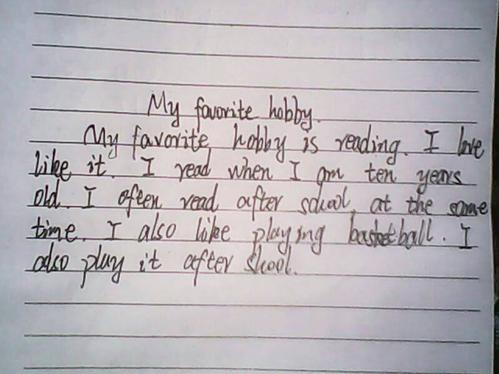 My favorite hobby.
My favorite hobby is reading. I love
like it. I read when I am ten years
old. I often read after school at the same
time. I also like playing basketball. I
also play it after skool.